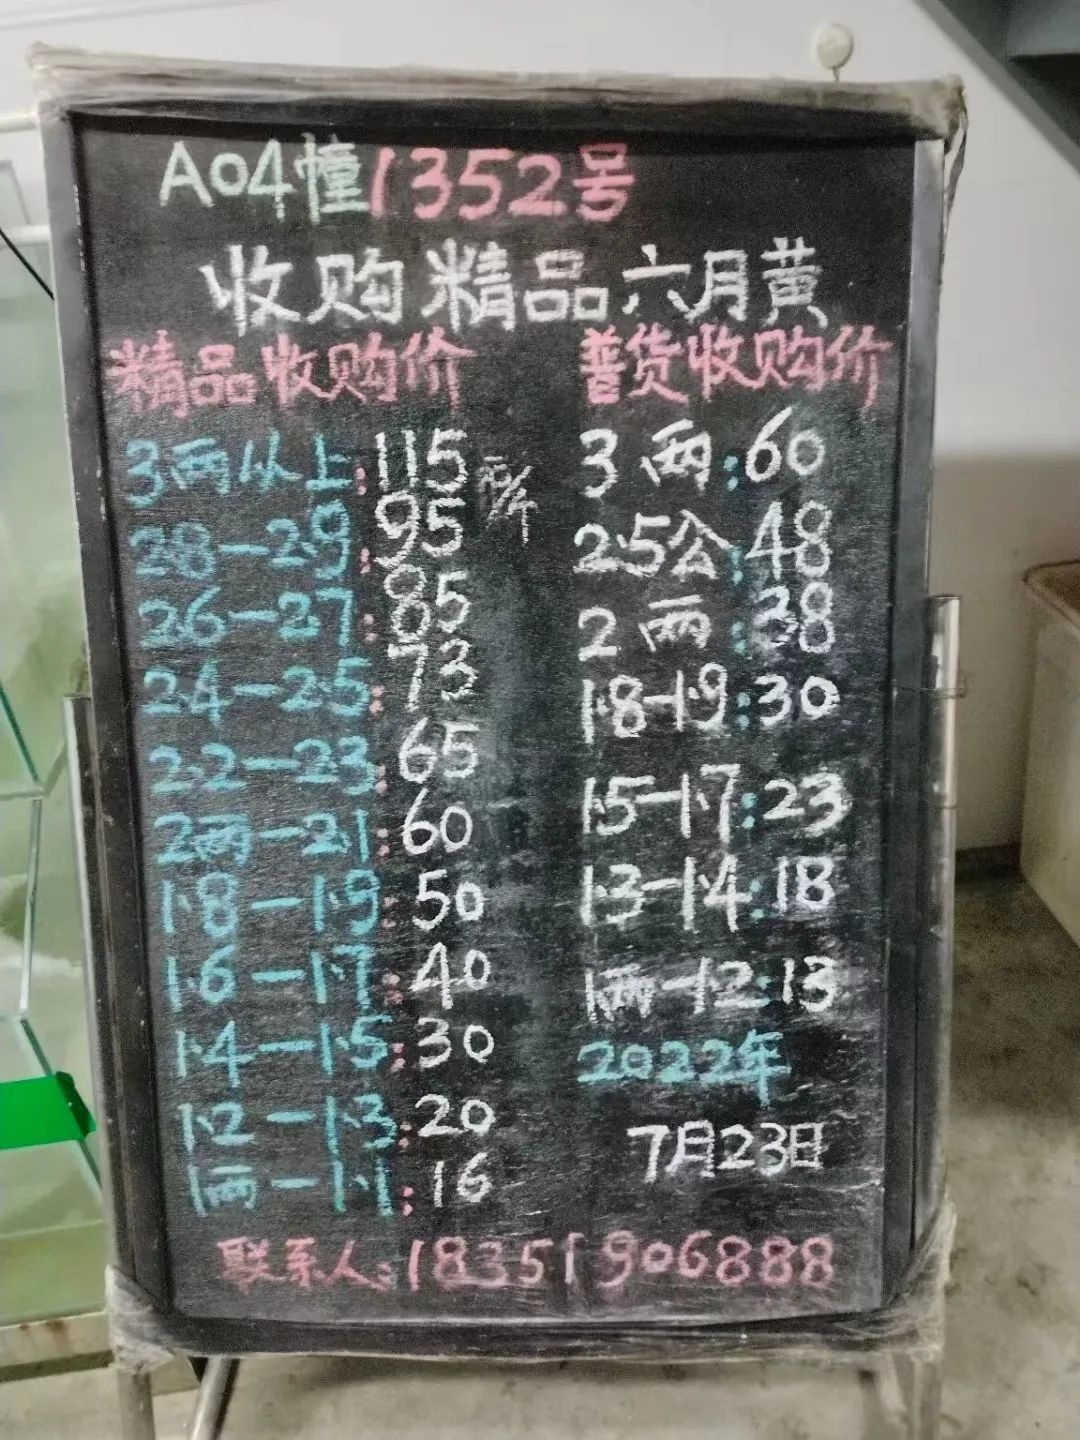 A04幢1352号
收购精品六月黄
精品收购价
3两以上:115
2.8-2.9:95
2.6-2.7:85
2.4-2.5:73
2.2-2.3:65
2两-2.1:60
1.8-1.9:50
1.6-1.7:40
1.4-1.5:30
1.2-1.3:20
1两-1.1:16
普货收购价
3两:60
2.5公:48
2两:38
1.8-1.9:30
1.5-1.7:23
1.3-1.4:18
1两-1.2:13
2022年
7月23日
联系人:18351906888